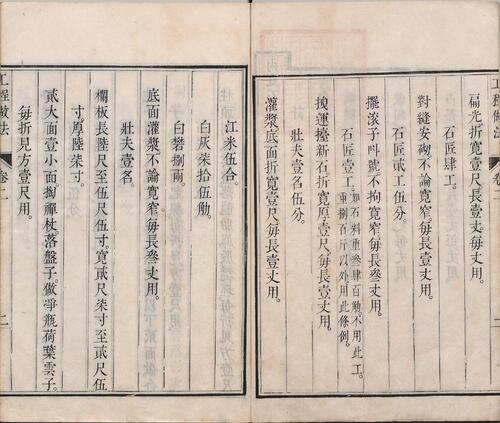 工程做法
偏光折寬壹尺長壹丈每丈用
石匠肆工
對縫安砌不論寬窄每長壹丈用
石匠貳工伍分
擺滾子呌號不拘寬窄每長叄丈用
石匠壹工如石料重叄肆百觔不用此工
重捌百斤以外用此條例
拽運擡新石折寬厚壹尺每長壹丈用
壯夫壹名伍分
灌漿底面折寬壹尺每長壹丈用
江米伍合
白灰柒拾伍觔
白礬捌兩
底面灌漿不論寬窄每長叄丈用
壯夫壹名
欄板長陸尺至伍尺伍寸寬貳尺柒寸至貳尺伍
寸厚陸寸
貳大面壹小面掏禪杖落盤子做淨瓶荷葉雲子
每折見方壹尺用
工程做法 卷二 二